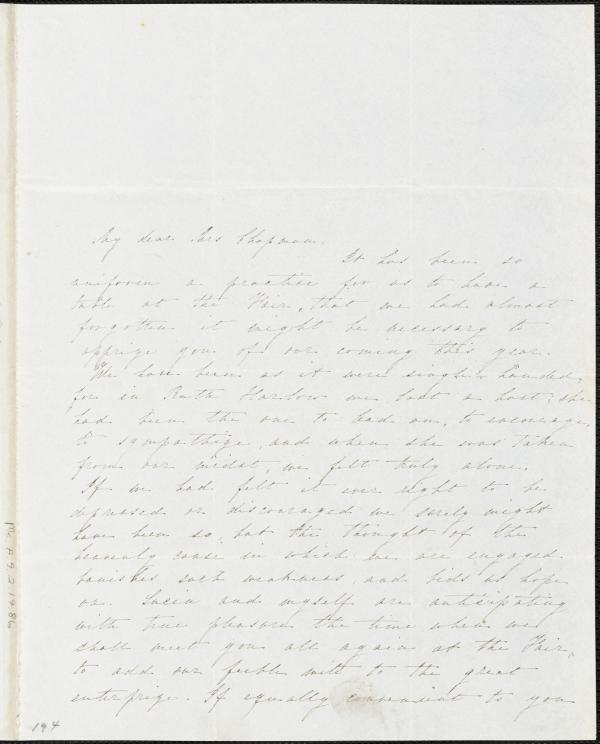 My dear Mrs Chapman.
It has been so
uniform a practise for us to have a
table at the Fair, that we had almost
forgotten it might be necessary to
apprize you of our coming this year.
We have been as it were single handed,
for in Ruth Harlow we lost a host; she
had been the one to lead on, to encourage,
to sympathize, and when she was taken
from our midst, we felt truly alone.
If we had felt it ever right to be
depressed or discouraged we surely might
have been so, but the thought of the
heavenly cause in which we are engaged
banishes such weakness, and bids us hope
on. Lucia and myself are anticipating
with true pleasure the time when we
shall meet you all again at the Fair,
to add our feeble mite to the great
enterprize. If equally convenient to you
Ms. A.9.2.19.86
194